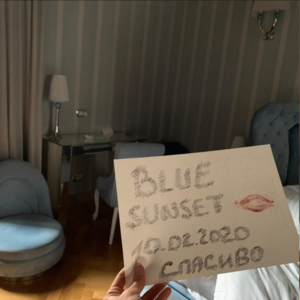 BLUE
SUNSET
10.02.2020
СПАСИВО